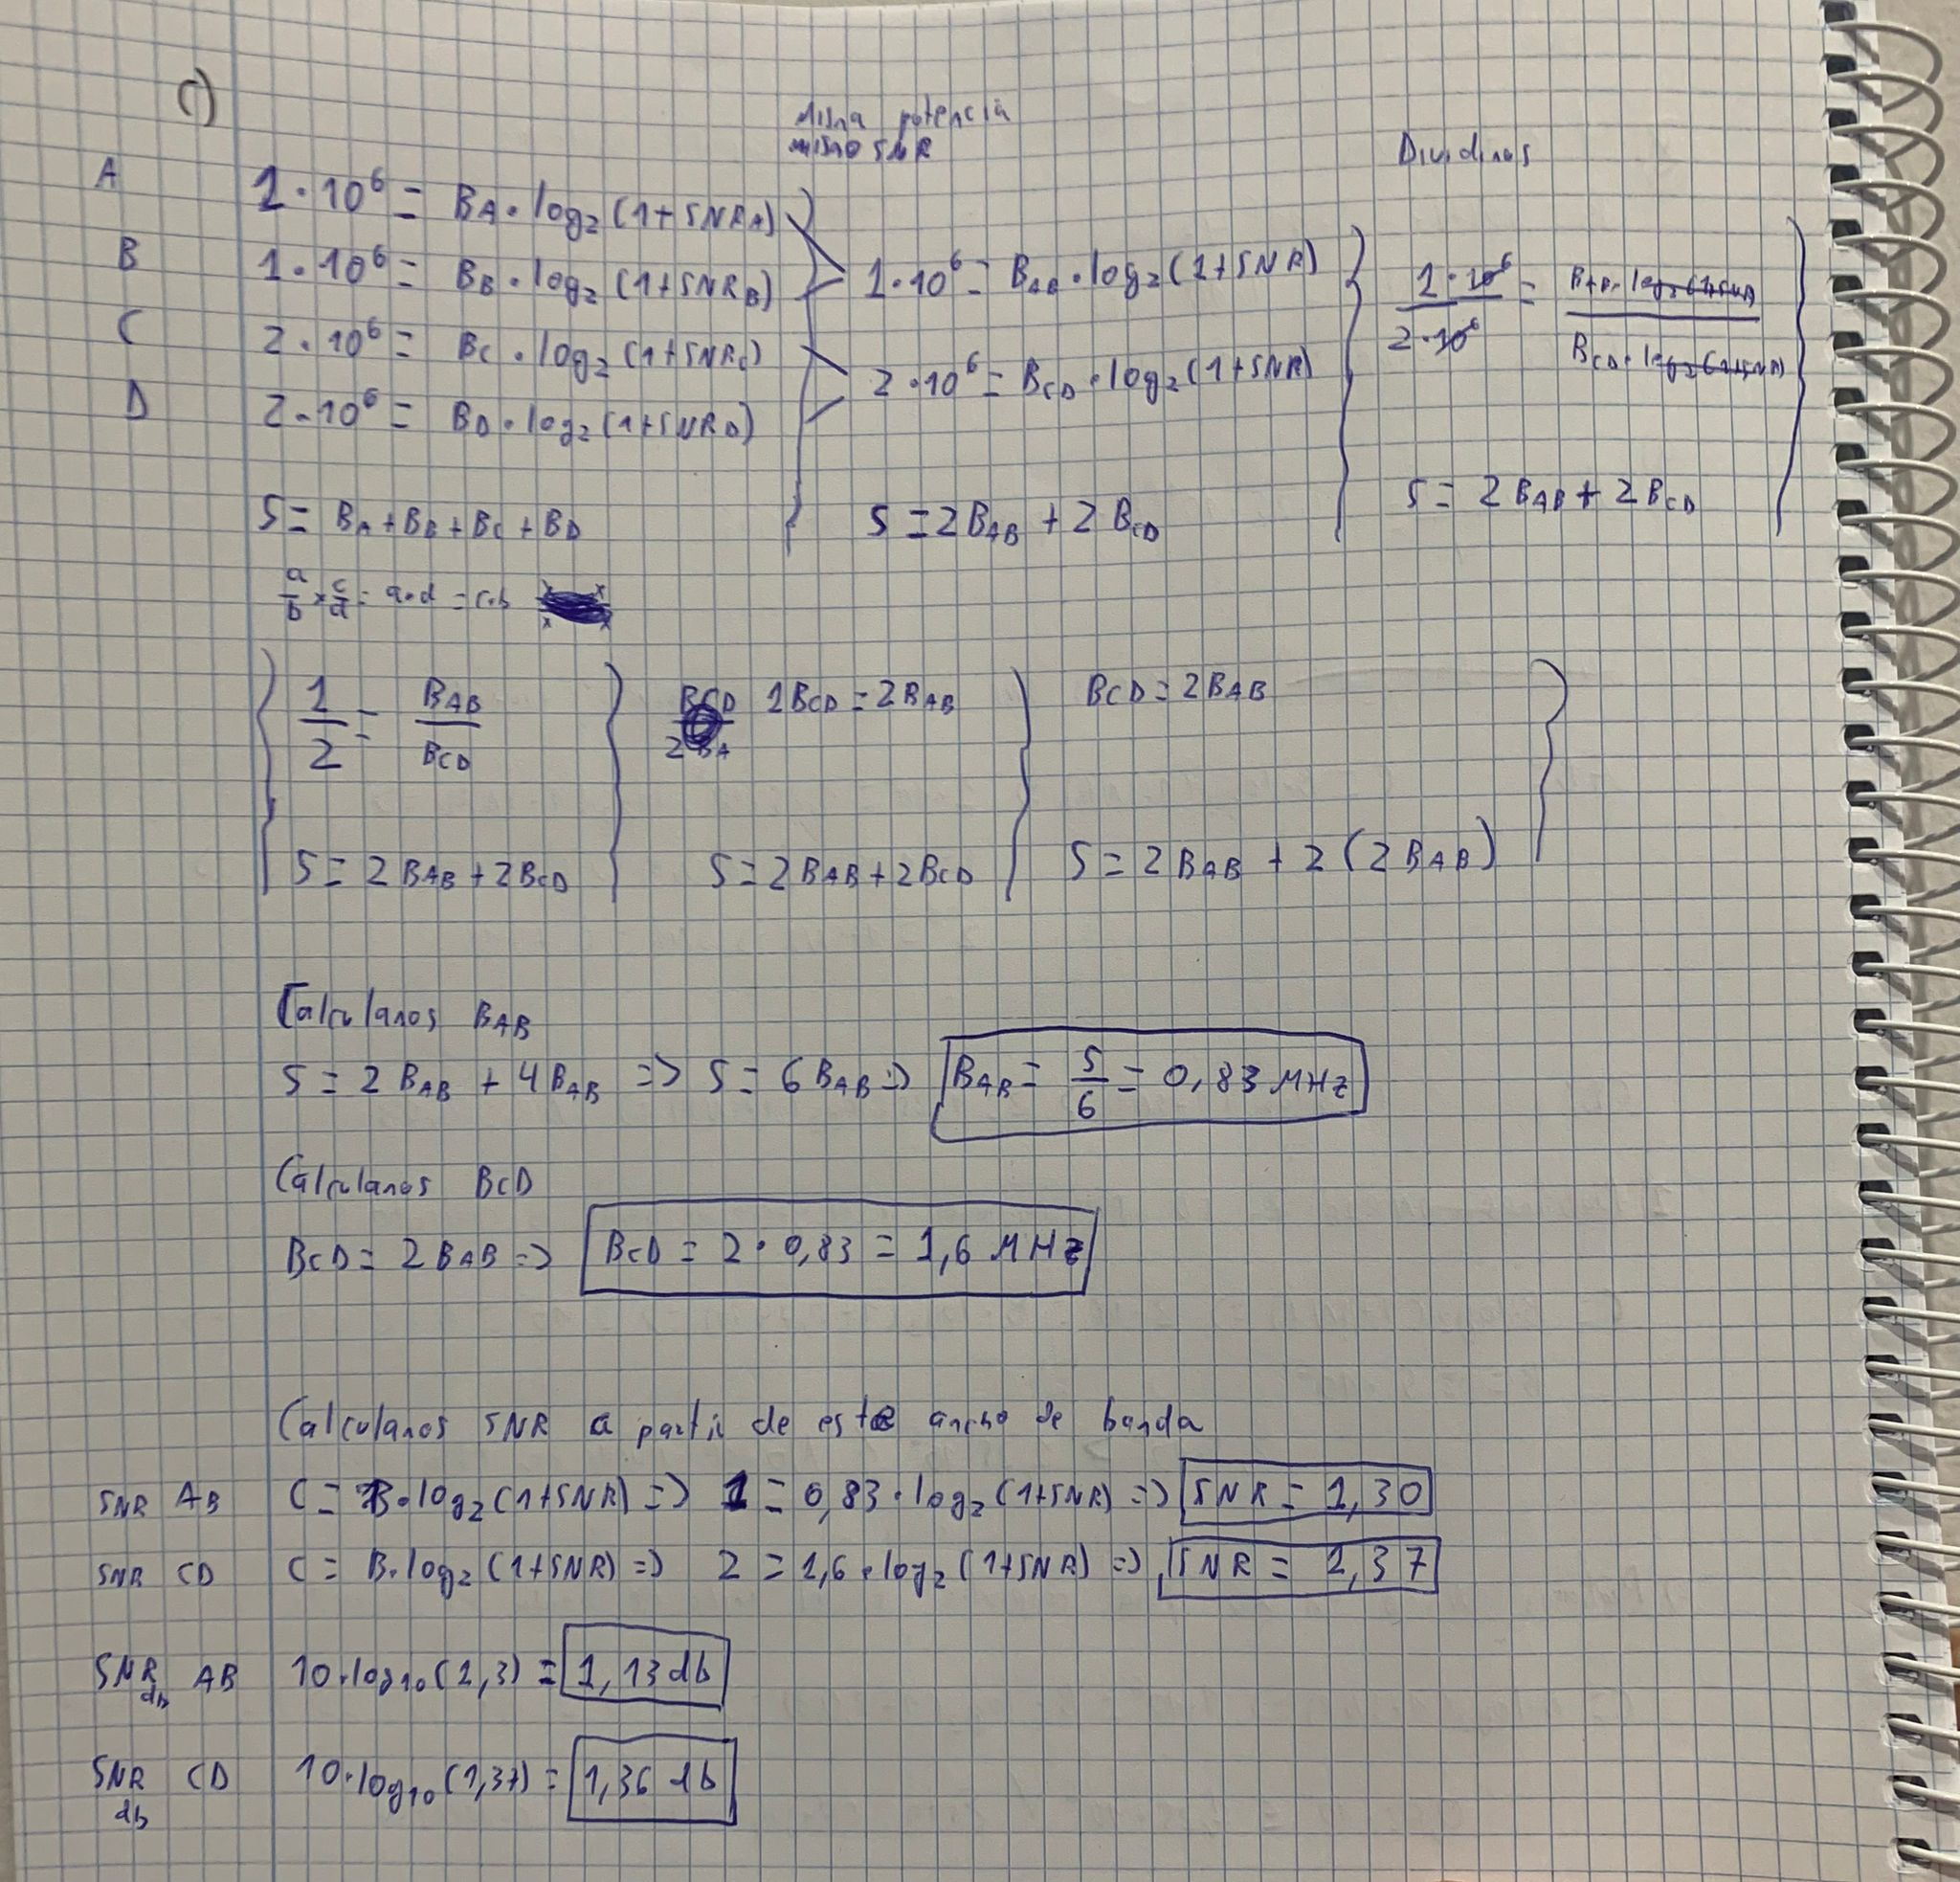 C)
Misma potencia
mismo SNR
Dividimos
A 1·10⁶ = BA·log₂(1+SNRA)
B 1·10⁶ = BB·log₂(1+SNRB)
C 2·10⁶ = BC·log₂(1+SNRC)
D 2·10⁶ = BD·log₂(1+SNRD)
5 = BA+BB+BC+BD
1·10⁶ = BAB·log₂(1+SNR)
2·10⁶ = BCD·log₂(1+SNR)
5 = 2BAB + 2BCD
1·10⁶/2·10⁶ = BAB·log₂(1+SNR)/BCD·log₂(1+SNR)
5 = 2BAB + 2BCD
a/b × c/d = a·d = c·b
1/2 = BAB/BCD
5 = 2BAB+2BCD
BCD
2BA
1BCD = 2BAB
5 = 2BAB+2BCD
BCD = 2BAB
5 = 2BAB + 2(2BAB)
Calculamos BAB
5 = 2BAB + 4BAB => 5 = 6BAB => BAB = 5/6 = 0,83 MHz
Calculamos BCD
BCD = 2BAB => BCD = 2·0,83 = 1,6 MHz
Calculamos SNR a partir de este ancho de banda
SNR AB C = B·log₂(1+SNR) => 1 = 0,83·log₂(1+SNR) => SNR = 1,30
SNR CD C = B·log₂(1+SNR) => 2 = 1,6·log₂(1+SNR) => SNR = 1,37
SNR db AB 10·log₁₀(1,3) = 1,13 db
SNR db CD 10·log₁₀(1,37) = 1,36 db